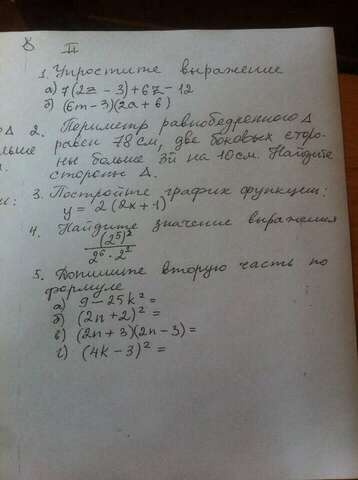 II
1. Упростите выражение
а) 7(2z - 3) + 6z - 12
б) (6m - 3)(2a + 6)
2. Периметр равнобедренного Δ
равен 78 см, две боковых сторо-
ны больше 3й на 10 см. Найдите
стороны Δ.
3. Постройте график функции:
y = 2(2x + 1)
4. Найдите значение выражения
(2⁵)²
2⁶ · 2²
5. Допишите вторую часть по
формуле
а) 9 - 25k² =
б) (2n + 2)² =
в) (2n + 3)(2n - 3) =
г) (4k - 3)² =